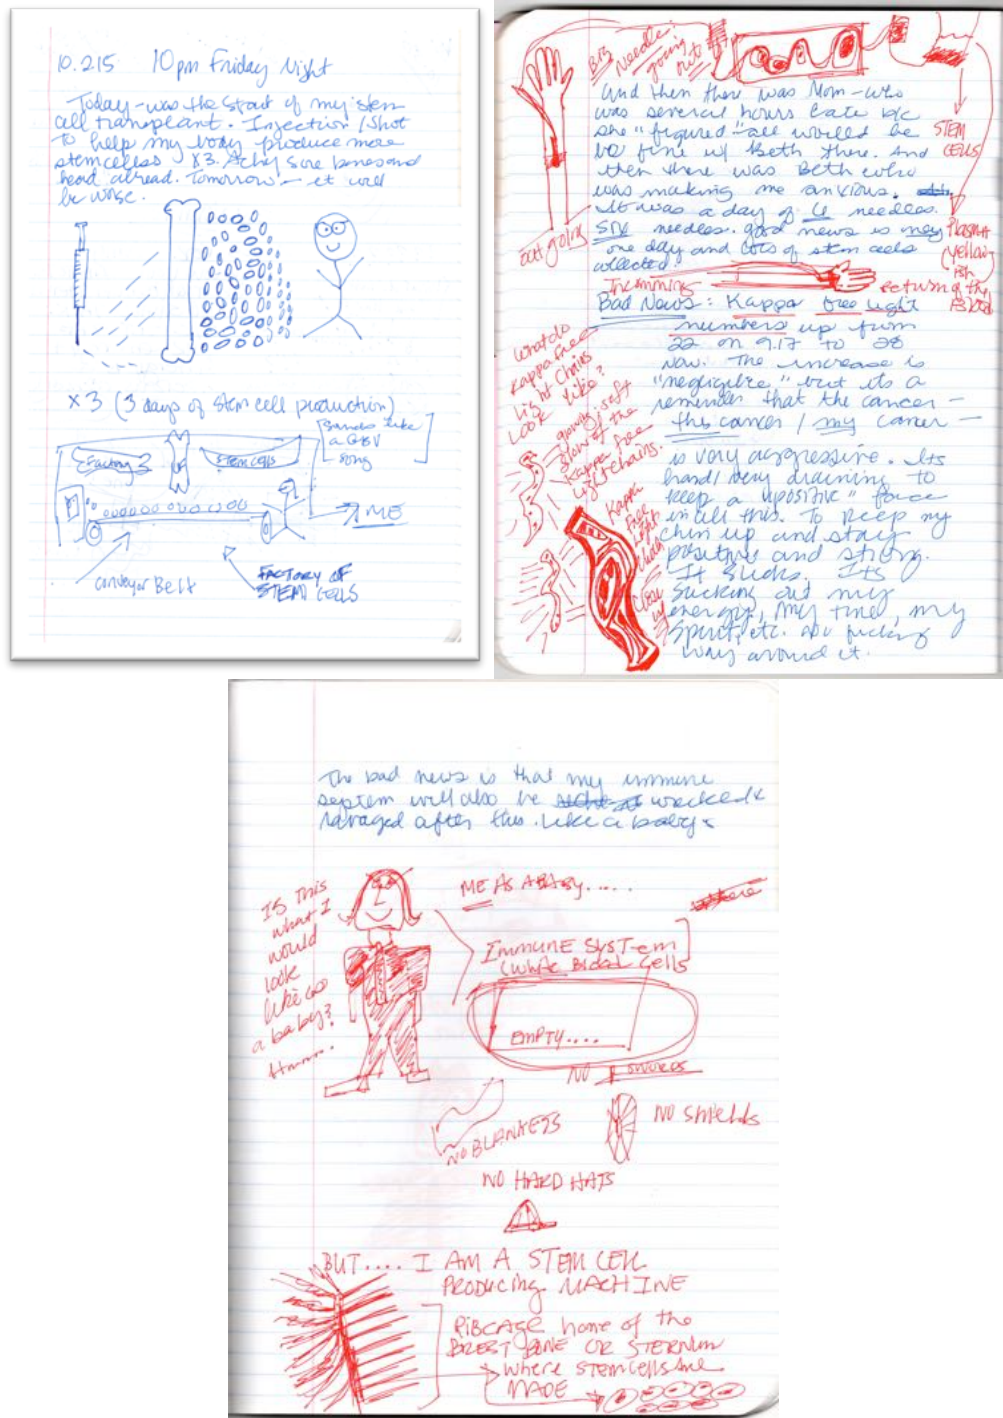 10.2.15 10pm Friday Night
Today - was the start of my stem
cell transplant. Injection / Shot
to help my body produce more
stemcells X3. Achy sore bones and
head already. Tomorrow - it will
be worse.
X 3 (3 days of stem cell production)
[Sounds like
a GBV
song]
Factory
Stem cells
ME
conveyor Belt
FACTORY OF
STEM CELLS
BIG
Needle
going
out
And then there was Mom - who
was several hours late b/c
she "figured" all would be
be fine w/ Beth there. And
then there was Beth who
was making me anxious.
It was a day of 6 needles.
SIX needles. good news is
one day and lots of stem cells
collected.
STEM
CELLS
Plasma
(yellow
ish)
Return of the
Blood
out going
Incomming
Bad News: Kappa free light
numbers up from
22 on 9.17 to 28
now. The increase is
"negligible," but its a
reminder that the cancer -
this cancer / my cancer -
is very aggressive. Its
hard / very draining to
keep a "positive" face
in all this. To keep my
chin up and stay
positive and strong.
It sucks. Its
sucking out my
energy, my time, my
spirit, etc. No fucking
way around it.
What do
Kappa free
Light Chains
LOOK like?
glowing: soft
glow of the
Kappa free
Light chains.
Kappa
free
Light
Chain
Close
up
The bad news is that my immune
system will also be wrecked &
ravaged after this. Like a baby.
IS This
what I
would
look
like as
a baby?
Hmmm.
ME AS A BABY.....
where
IMMUNE SYSTEM
(White Blood Cells
EMPTY....
NO SWORDS
NO BLANKETS
NO Shields
NO HARD HATS
BUT.... I AM A STEM CELL
PRODUCING MACHINE
RIBCAGE home of the
BREST BONE OR STERNUM
where STEM CELLS are
MADE